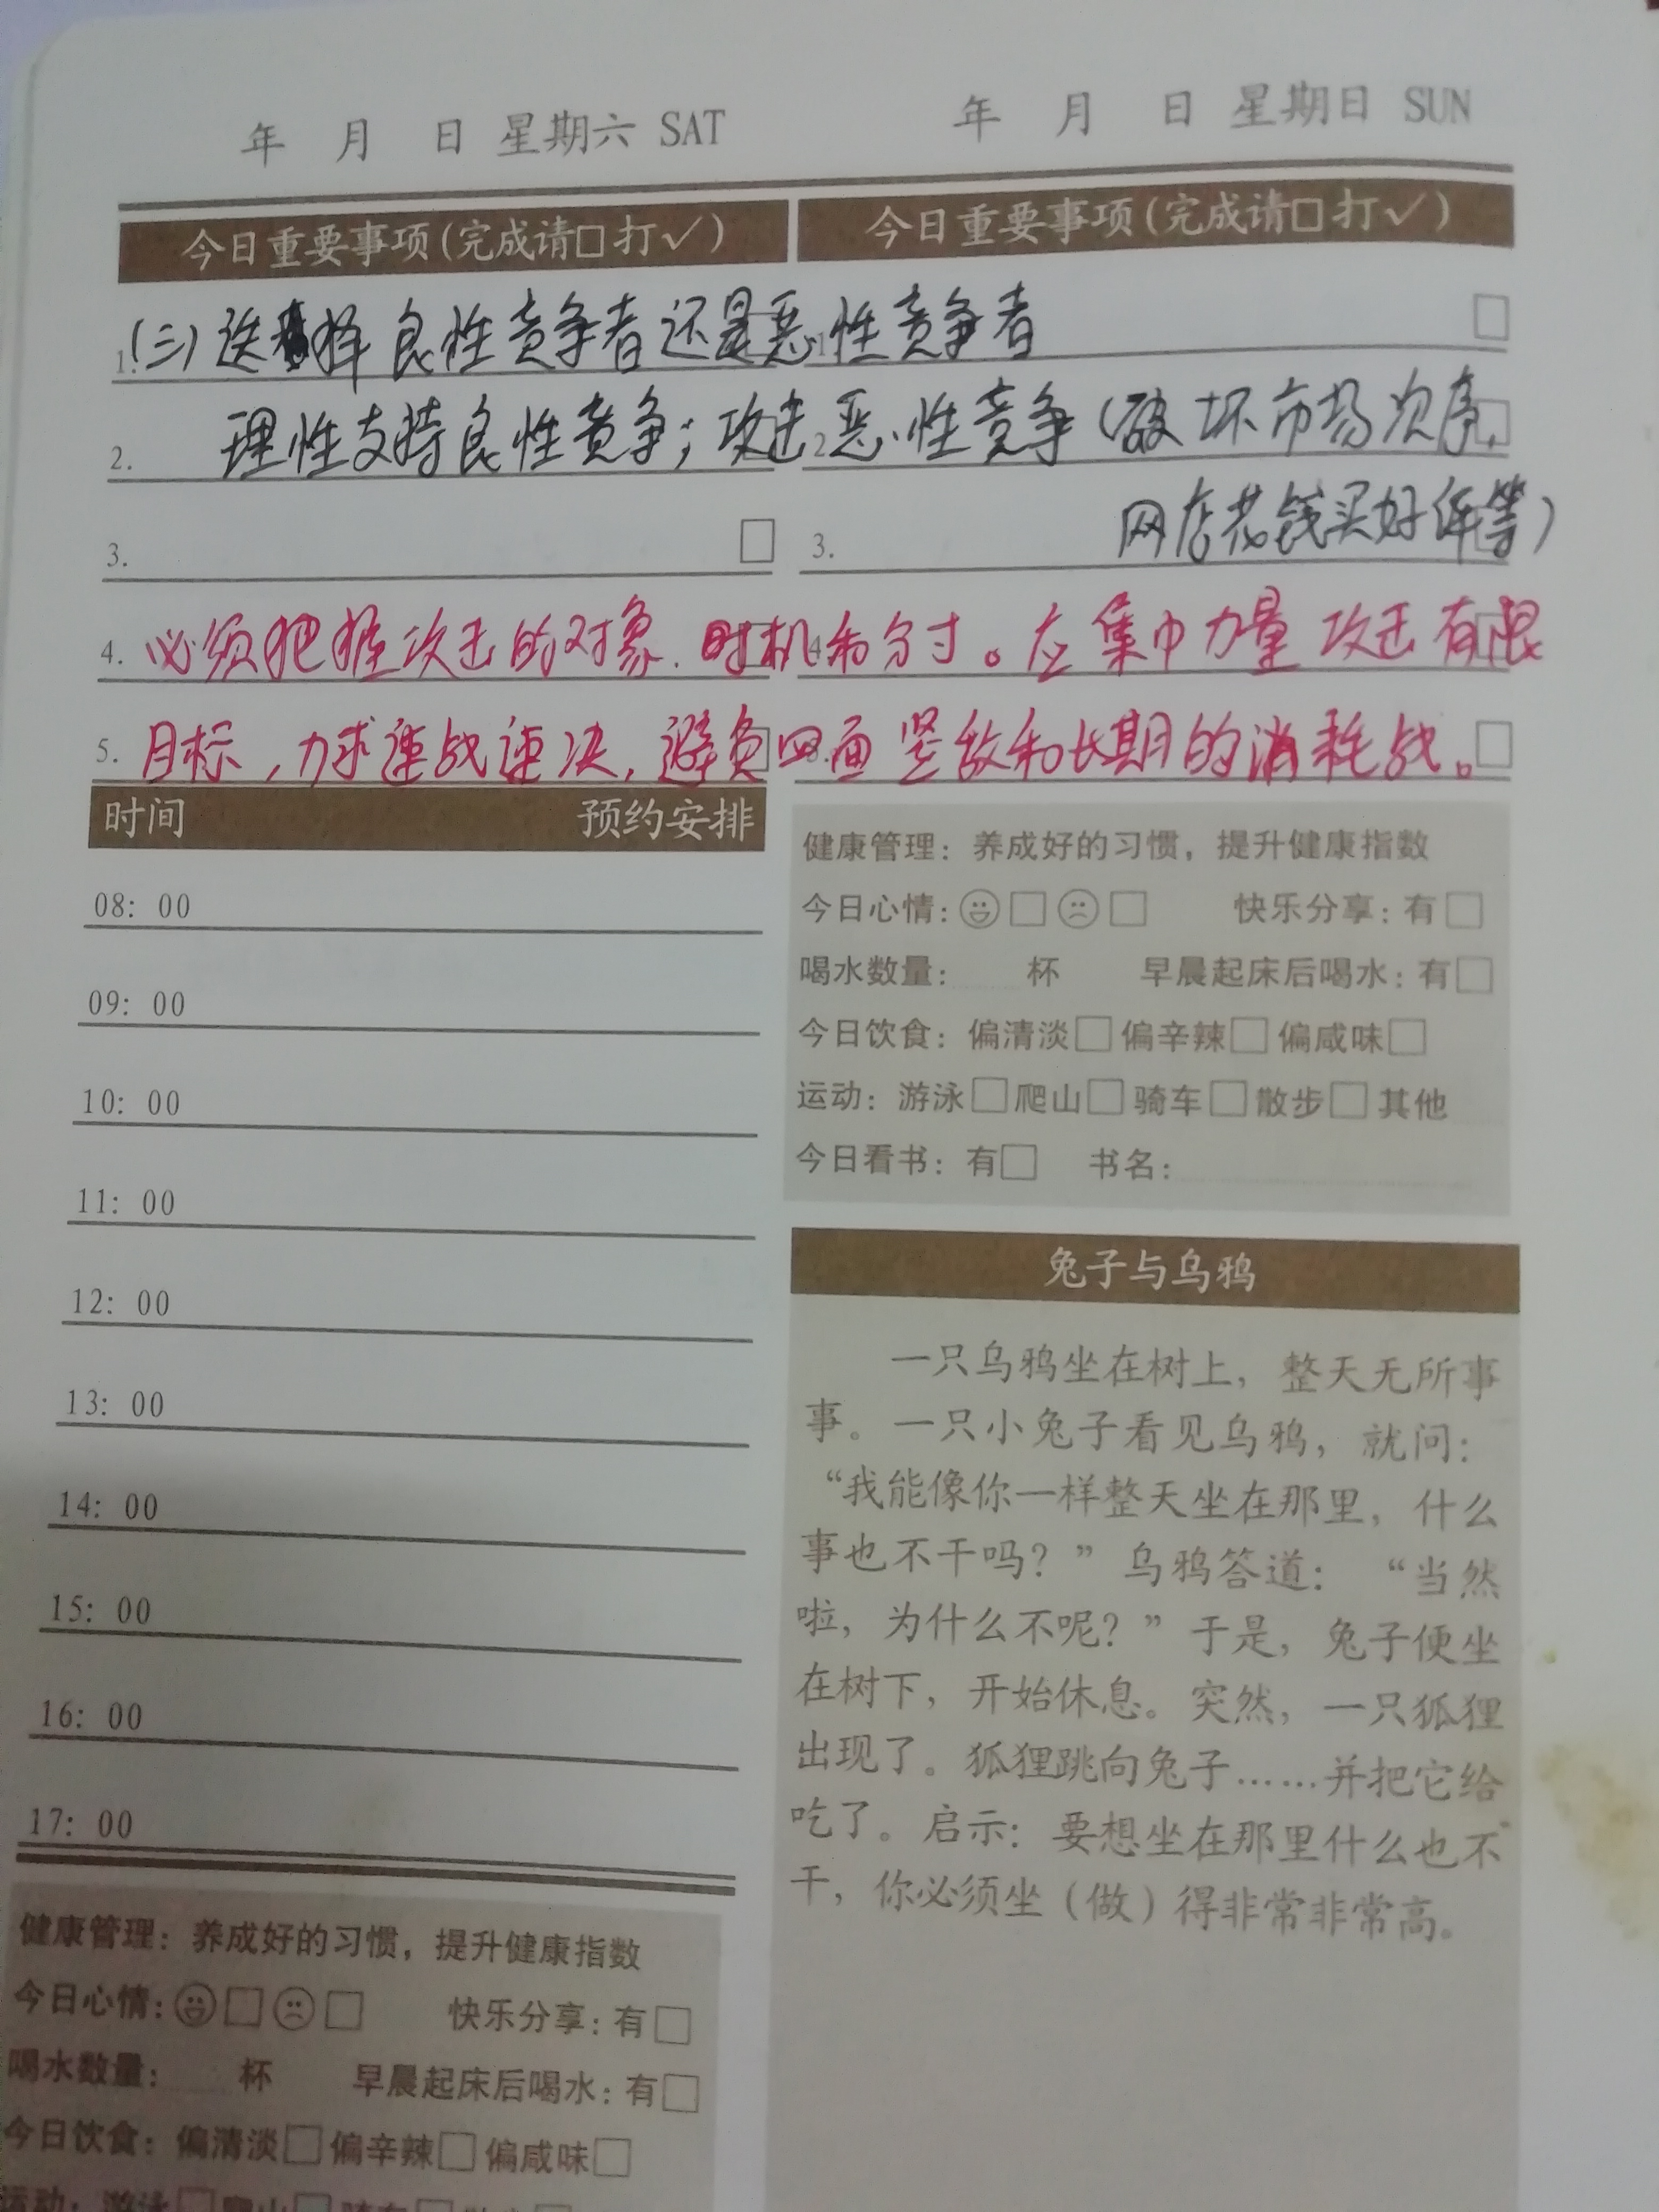 年 月 日 星期六 SAT
年 月 日 星期日 SUN
今日重要事项(完成请□打✓)
今日重要事项(完成请□打✓)
1.(三)选择良性竞争者还是恶性竞争者
2. 理性支持良性竞争;攻击恶性竞争(破坏市场次序,
3. 3. 网店花钱买好评等)
4. 必须把握攻击的对象、时机和分寸。应集中力量攻击有限
5. 目标,力求速战速决,避免四面竖敌和长期的消耗战。
时间 预约安排
08: 00
09: 00
10: 00
11: 00
12: 00
13: 00
14: 00
15: 00
16: 00
17: 00
健康管理: 养成好的习惯, 提升健康指数
今日心情: □ □ 快乐分享: 有□
喝水数量: 杯 早晨起床后喝水: 有□
今日饮食: 偏清淡□偏辛辣□偏咸味□
运动: 游泳□爬山□骑车□散步□其他
健康管理: 养成好的习惯, 提升健康指数
今日心情: □ □ 快乐分享: 有□
喝水数量: 杯 早晨起床后喝水: 有□
今日饮食: 偏清淡□偏辛辣□偏咸味□
运动: 游泳□爬山□骑车□散步□其他
今日看书: 有□ 书名:
兔子与乌鸦
一只乌鸦坐在树上, 整天无所事
事。一只小兔子看见乌鸦, 就问:
“我能像你一样整天坐在那里, 什么
事也不干吗?” 乌鸦答道: “当然
啦, 为什么不呢?” 于是, 兔子便坐
在树下, 开始休息。突然, 一只狐狸
出现了。狐狸跳向兔子……并把它给
吃了。启示: 要想坐在那里什么也不
干, 你必须坐(做)得非常非常高。